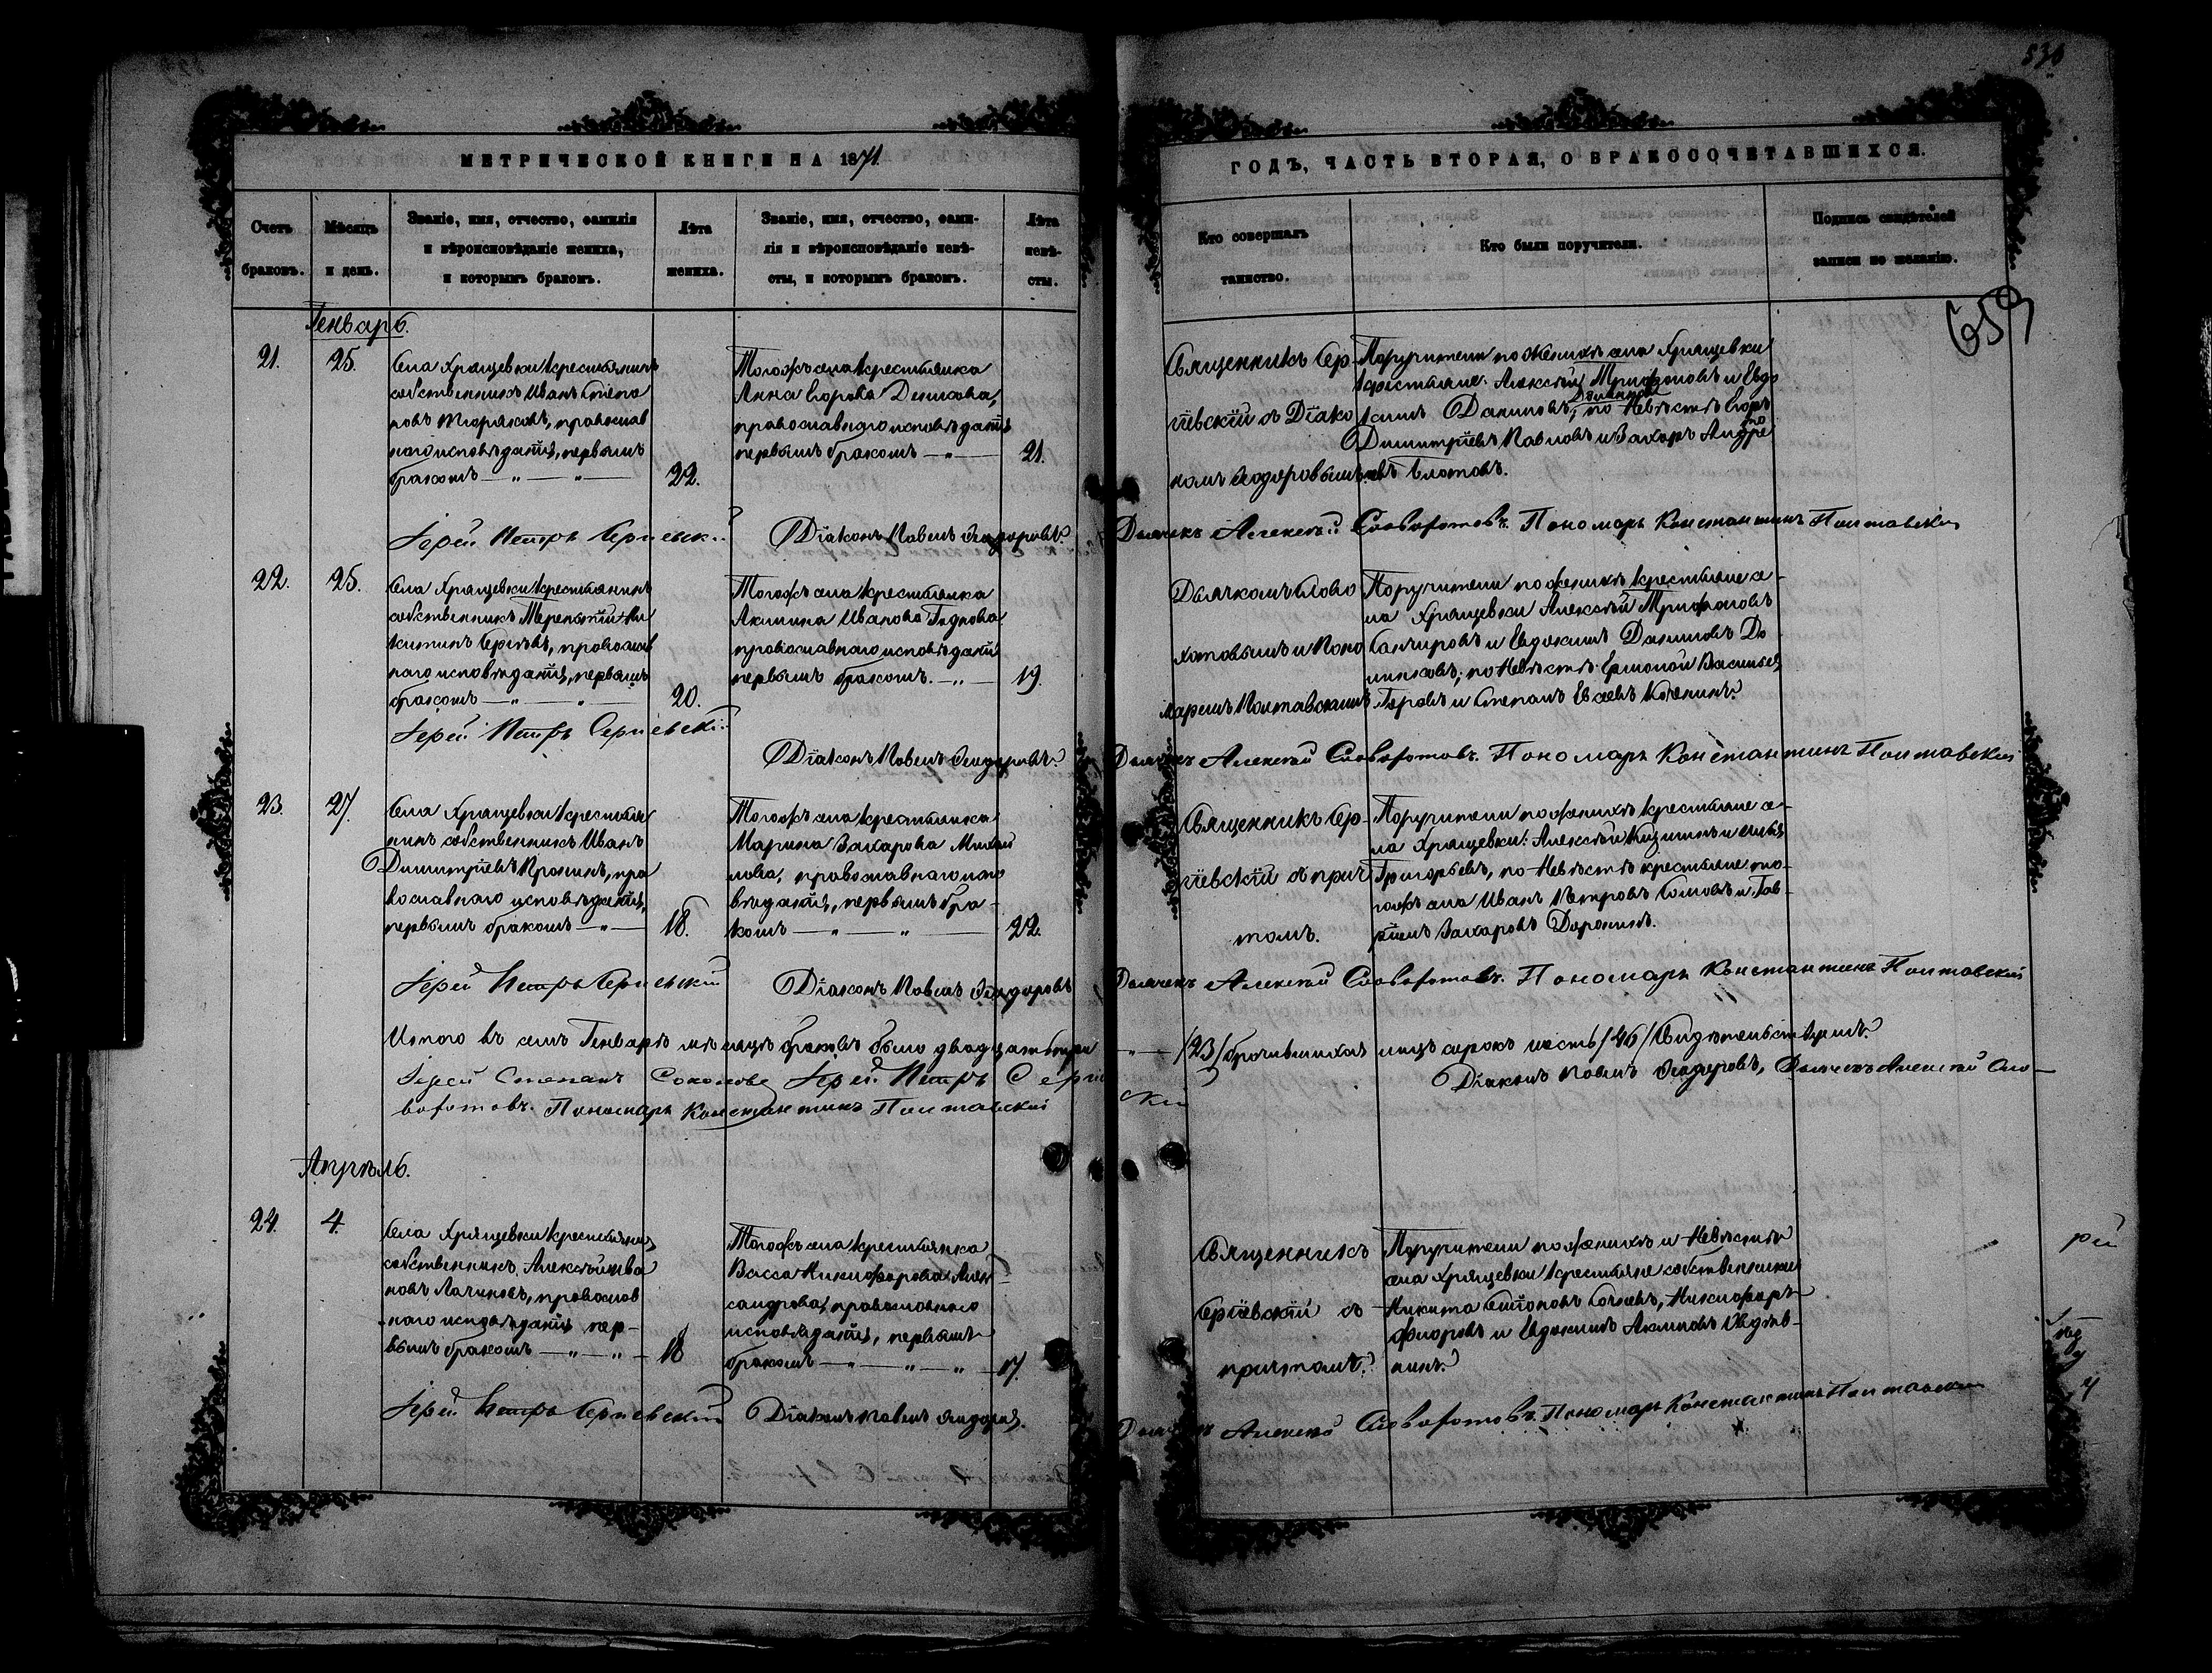 530
МЕТРИЧЕСКОЙ КНИГИ НА 1871
ГОДЪ, ЧАСТЬ ВТОРАЯ, О БРАКОСОЧЕТАВШИХСЯ.
Счетъ браковъ.
Мѣсяцъ и день.
Званіе, имя, отчество, фамилія
и вѣроисповѣданіе жениха,
и которымъ бракомъ.
Лѣта жениха.
Званіе, имя, отчество, фами-
лія и вѣроисповѣданіе невѣ-
сты, и которымъ бракомъ.
Лѣта невѣ-
сты.
Кто совершалъ
таинство.
Кто были поручители.
Подпись свидѣтелей
записи по желанію.
659
Генварь.
21.
25.
Села Хрящевки крестьянинъ
собственникъ Иванъ Степа
новъ, православ
наго исповѣданія, первымъ
бракомъ
22.
Тогожъ села крестьянка
Анна Егорова Денисова,
православнаго исповѣданія
первымъ бракомъ
21.
Священникъ Сер-
гіевскій съ Діако
номъ Ѳеодоровымъ.
Поручители по женихѣ села Хрящевки
крестьяне: Алексѣй Трифоновъ и Евдо
кимъ Даниловъ, по невѣстѣ Егоръ
Димитріевъ Павловъ и Захаръ Андре
евъ
Іерей Петръ Сергіевскій
Діаконъ Павелъ Ѳеодоровъ.
Дьячекъ Алексѣй Словоротовъ. Пономарь Константинъ Полтавскій
22.
25.
Села Хрящевки крестьянинъ
собственникъ Терентій Ни
китинъ Сергѣевъ, православ
наго исповѣданія, первымъ
бракомъ
20.
Тогожъ села крестьянка
Акилина Иванова
православнаго исповѣданія
первымъ бракомъ.
19.
Дьячкомъ Слово
ротовымъ и Поно
маремъ Полтавскимъ
Поручители по женихѣ крестьяне се-
ла Хрящевки Алексѣй Трифоновъ
и Евдокимъ Даниловъ
по невѣстѣ Ермолай Васильевъ
и Степанъ Евсеевъ
Іерей Петръ Сергіевскій
Діаконъ Павелъ Ѳеодоровъ.
Дьячекъ Алексѣй Словоротовъ. Пономарь Константинъ Полтавскій
23.
27.
Села Хрящевки крестья
нинъ собственникъ Иванъ
Димитріевъ, пра
вославнаго исповѣданія,
первымъ бракомъ
18.
Тогожъ села крестьянка
Марина Захарова Михай
лова, православнаго испо
вѣданія, первымъ бра-
комъ
22.
Священникъ Сер-
гіевскій съ прич
томъ.
Поручители по женихѣ крестьяне се-
ла Хрящевки: Алексѣй
Григорьевъ, по невѣстѣ крестьяне то-
гожъ села Иванъ Петровъ и Гав-
ріилъ Захаровъ
Іерей Петръ Сергіевскій
Діаконъ Павелъ Ѳеодоровъ
Дьячекъ Алексѣй Словоротовъ. Пономарь Константинъ Полтавскій
Итого въ семъ Генварѣ мѣсяцѣ браковъ было двадцать три
/23/ брачившихся лицъ сорокъ шесть /46/ Свидѣтельствуемъ.
Іерей Степанъ Соколовъ Іерей Петръ Сергіевскій
Діаконъ Павелъ Ѳеодоровъ, Дьячекъ Алексѣй Сло-
воротовъ. Пономарь Константинъ Полтавскій
Апрѣль.
24.
4.
Села Хрящевки крестьянинъ
собственникъ Алексѣй Ива
новъ, православ
наго исповѣданія пер-
вымъ бракомъ
18
Тогожъ села крестьянка
Васса Никифорова Алек
сандрова, православнаго
исповѣданія, первымъ
бракомъ
17.
Священникъ
Сергіевскій съ
причтомъ.
Поручители по женихѣ и невѣстѣ
села Хрящевки крестьяне собственники
Никита, Никифоръ
и Евдокимъ Акимовъ
Іерей Петръ Сергіевскій
Діаконъ Павелъ Ѳеодоровъ.
Дьячекъ Алексѣй Словоротовъ. Пономарь Константинъ Полтавскій